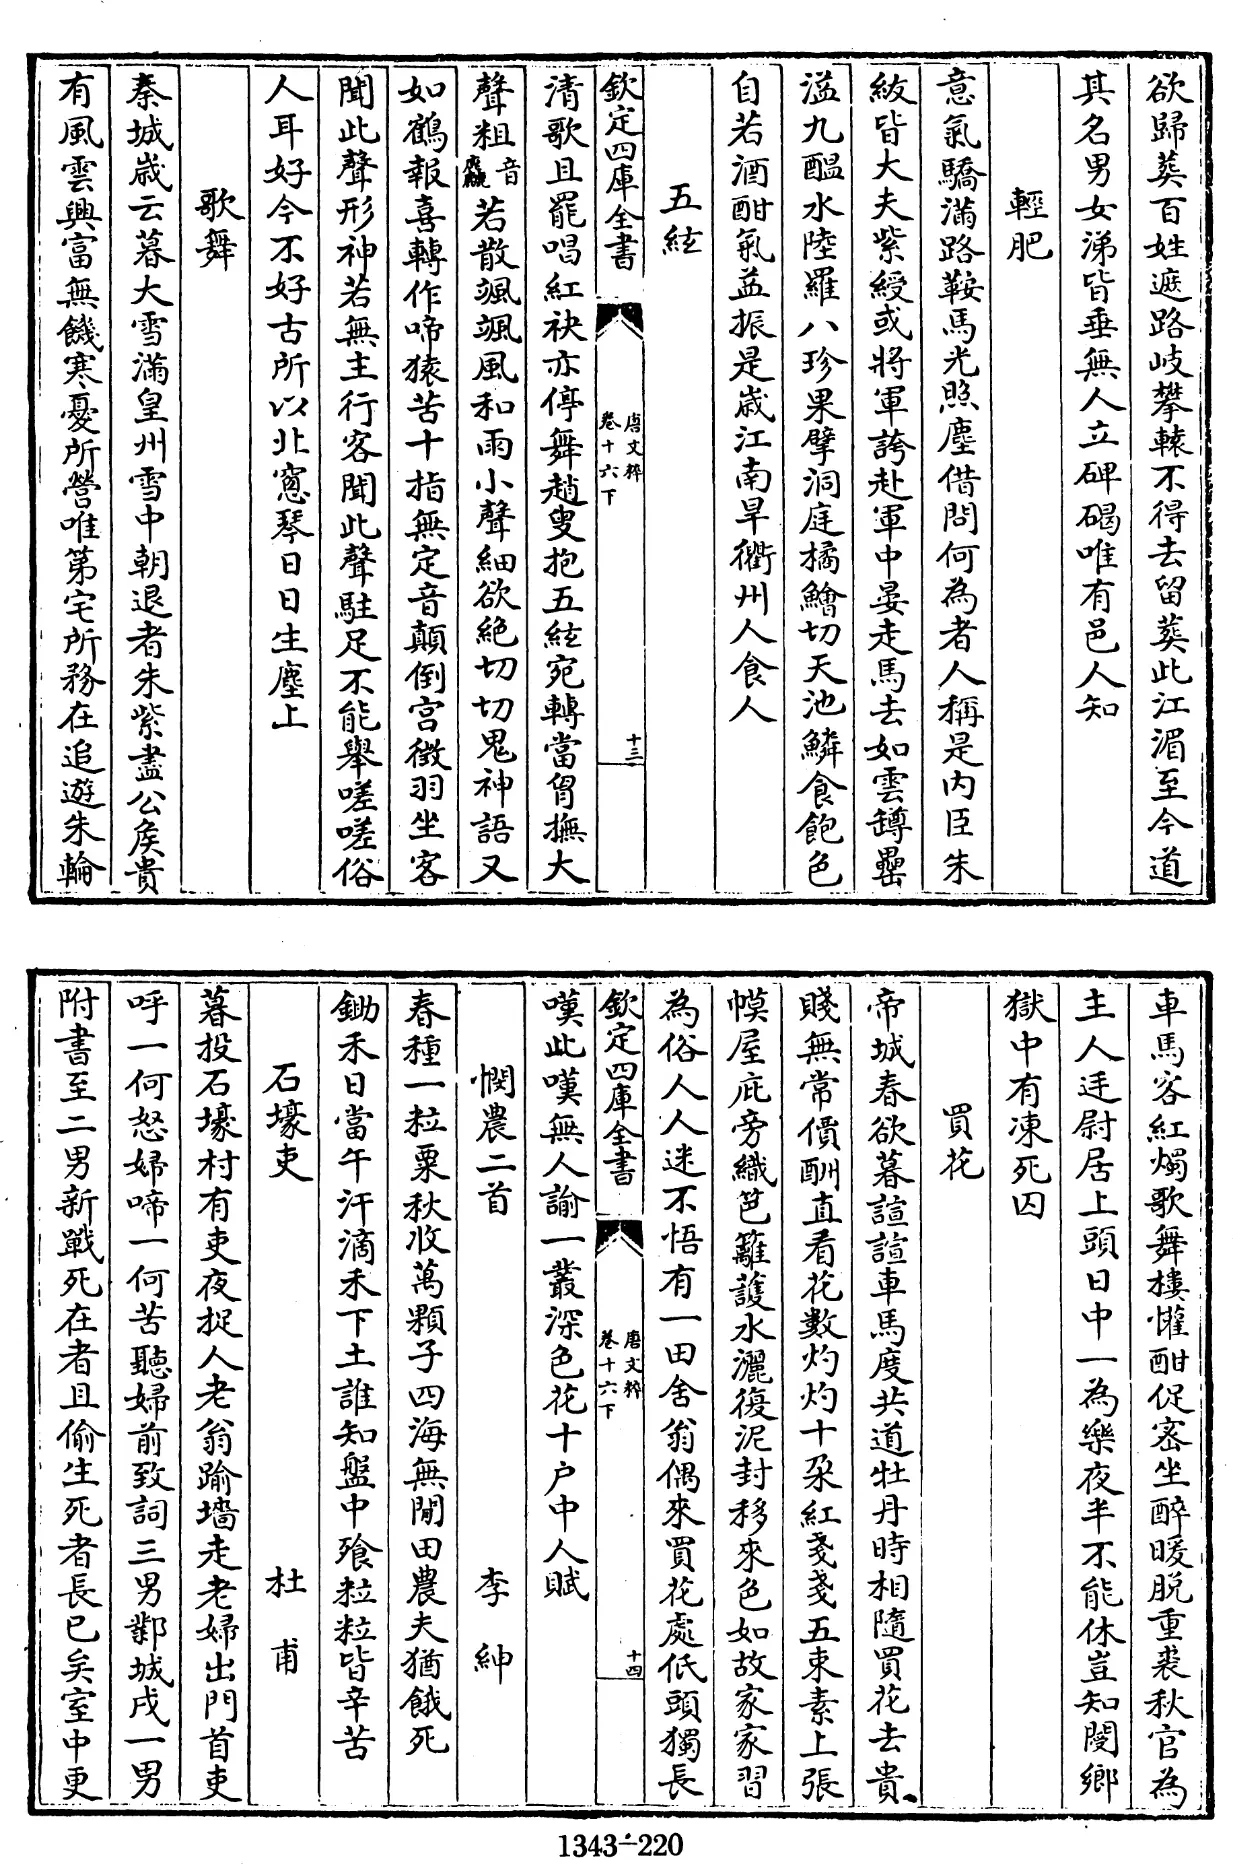 欲歸葬百姓遮路岐攀轅不得去留葬此江湄至今道
其名男女涕皆垂無人立碑碣唯有邑人知
輕肥
意氣驕滿路鞍馬光照塵借問何為者人稱是内臣朱
紱皆大夫紫綬或將軍誇赴軍中宴走馬去如雲罇罍
溢九醖水陸羅八珍果擘洞庭橘鱠切天池鱗食飽色
自若酒酣氣益振是歲江南旱衢州人食人
五絃
欽定四庫全書
唐文粹
卷十六下
十三
清歌且罷唱紅袂亦停舞趙叟抱五絃宛轉當胷撫大
聲粗音麤若散颯颯風和雨小聲細欲絶切切鬼神語又
如鶴報喜轉作啼猿苦十指無定音顛倒宫徴羽坐客
聞此聲形神若無主行客聞此聲駐足不能舉嗟嗟俗
人耳好今不好古所以北窓琴日日生塵上
歌舞
秦城歲云暮大雪滿皇州雪中朝退者朱紫盡公矦貴
有風雲興富無饑寒憂所營唯第宅所務在追遊朱輪
車馬客紅燭歌舞樓懽酣促宻坐醉暖脱重裘秋官為
主人廷尉居上頭日中一為樂夜半不能休豈知閿鄉
獄中有凍死囚
買花
帝城春欲暮諠諠車馬度共道牡丹時相隨買花去貴
賤無常價酬直看花數灼灼十朶紅戔戔五束素上張
幙屋庇旁織笆籬護水灑復泥封移來色如故家家習
為俗人人迷不悟有一田舍翁偶來買花處低頭獨長
欽定四庫全書
唐文粹
卷十六下
十四
嘆此嘆無人諭一叢深色花十户中人賦
憫農二首 李紳
春種一粒粟秋收萬顆子四海無閒田農夫猶餓死
鋤禾日當午汗滴禾下土誰知盤中飱粒粒皆辛苦
石壕吏 杜甫
暮投石壕村有吏夜捉人老翁踰墻走老婦出門首吏
呼一何怒婦啼一何苦聽婦前致詞三男鄴城戍一男
附書至二男新戰死在者且偷生死者長已矣室中更
1343-220